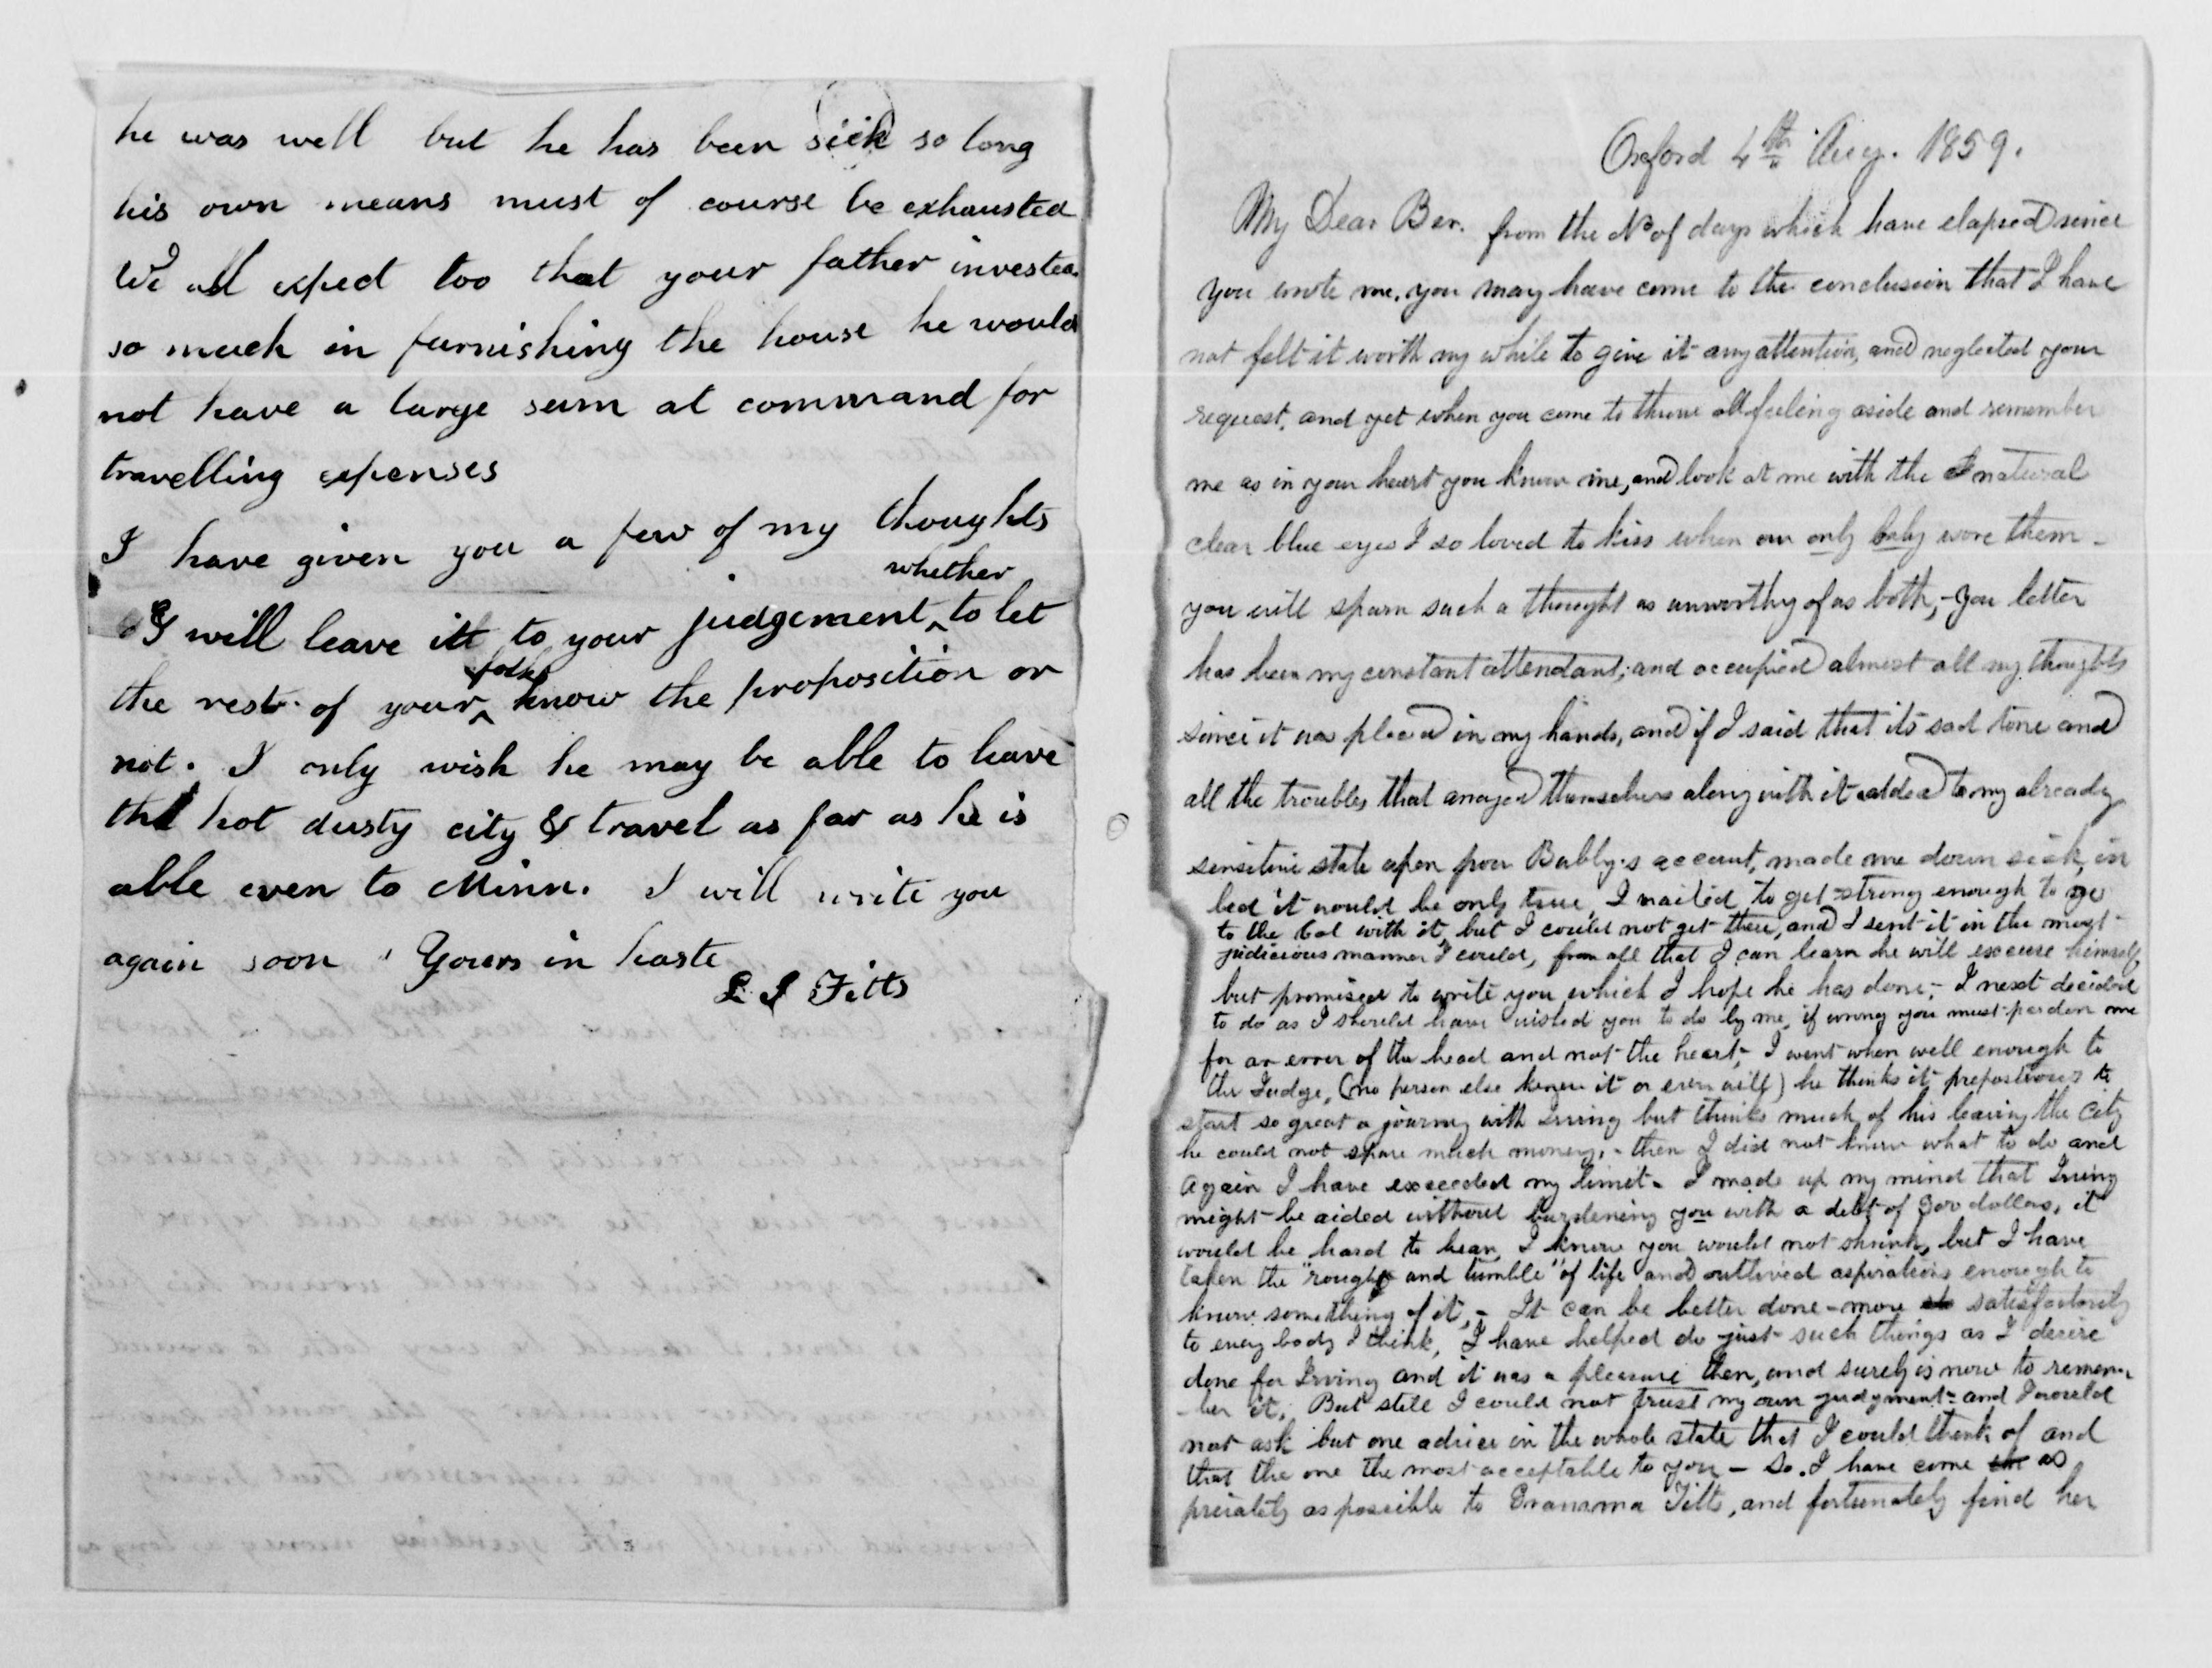 he was well but he has been sick so long
his own means must of course be exhausted
We all expect too that your father invested
so much in furnishing the house he would
not have a large sum at command for
travelling expenses
I have given you a few of my thoughts
whether
& I will leave it to your judgement ^ to let
folks
the rest of your ^ know the proposition or
not. I only wish he may be able to leave
the hot dusty city & travel as far as he is
able even to Minn. I will write you
again soon Yours in haste
L S Fitts
Oxford 4th Aug. 1859.
My Dear Ber. from the No of days which have elapsed since
you wrote me, you may have come to the conclusion that I have
not felt it worth my while to give it any attention, and neglected your
request, and yet when you come to throw all feeling aside and remember
me as in your heart you know me, and look at me with the natural
clear blue eyes I so loved to kiss when our only baby wore them -
you will spurn such a thought as unworthy of us both, - You letter
has been my constant attendant, and occupied almost all my thoughts
since it was placed in my hands, and if I said that its sad tone and
all the troubles that arrayed themselves along with it added to my already
sensitive state upon poor Bubby's account, made me down sick, in
bed it would be only true, I waited to get strong enough to go
to the Col with it, but I could not get there, and I sent it in the most
judicious manner I could, from all that I can learn he will excuse himself,
but promised to write you which I hope he has done, - I next decided
to do as I should have wished you to do by me, if wrong you must pardon me
for an error of the head and not the heart, I went when well enough to
the Judge, (no person else knew it or ever will) he thinks it preposterous to
start so great a journey with Irving but thinks much of his leaving the City
he could not spare much money, - then I did not know what to do and
again I have exceeded my limit - I made up my mind that Irving
might be aided without burdening you with a debt of 300 dollars, it
would be hard to bear, I know you would not shrink, but I have
taken the "rough and tumble" of life and outlived aspirations enough to
know something of it, - It can be better done - more satisfactorily
to every body I think, I have helped do just such things as I desire
done for Irving and it was a pleasure then, and surely is now to remem-
-ber it, But still I could not trust my own judgment - and I would
not ask but one advice in the whole state that I could think of and
that the one the most acceptable to you - So. I have come as
privately as possible to Granmma Fitts, and fortunately find her